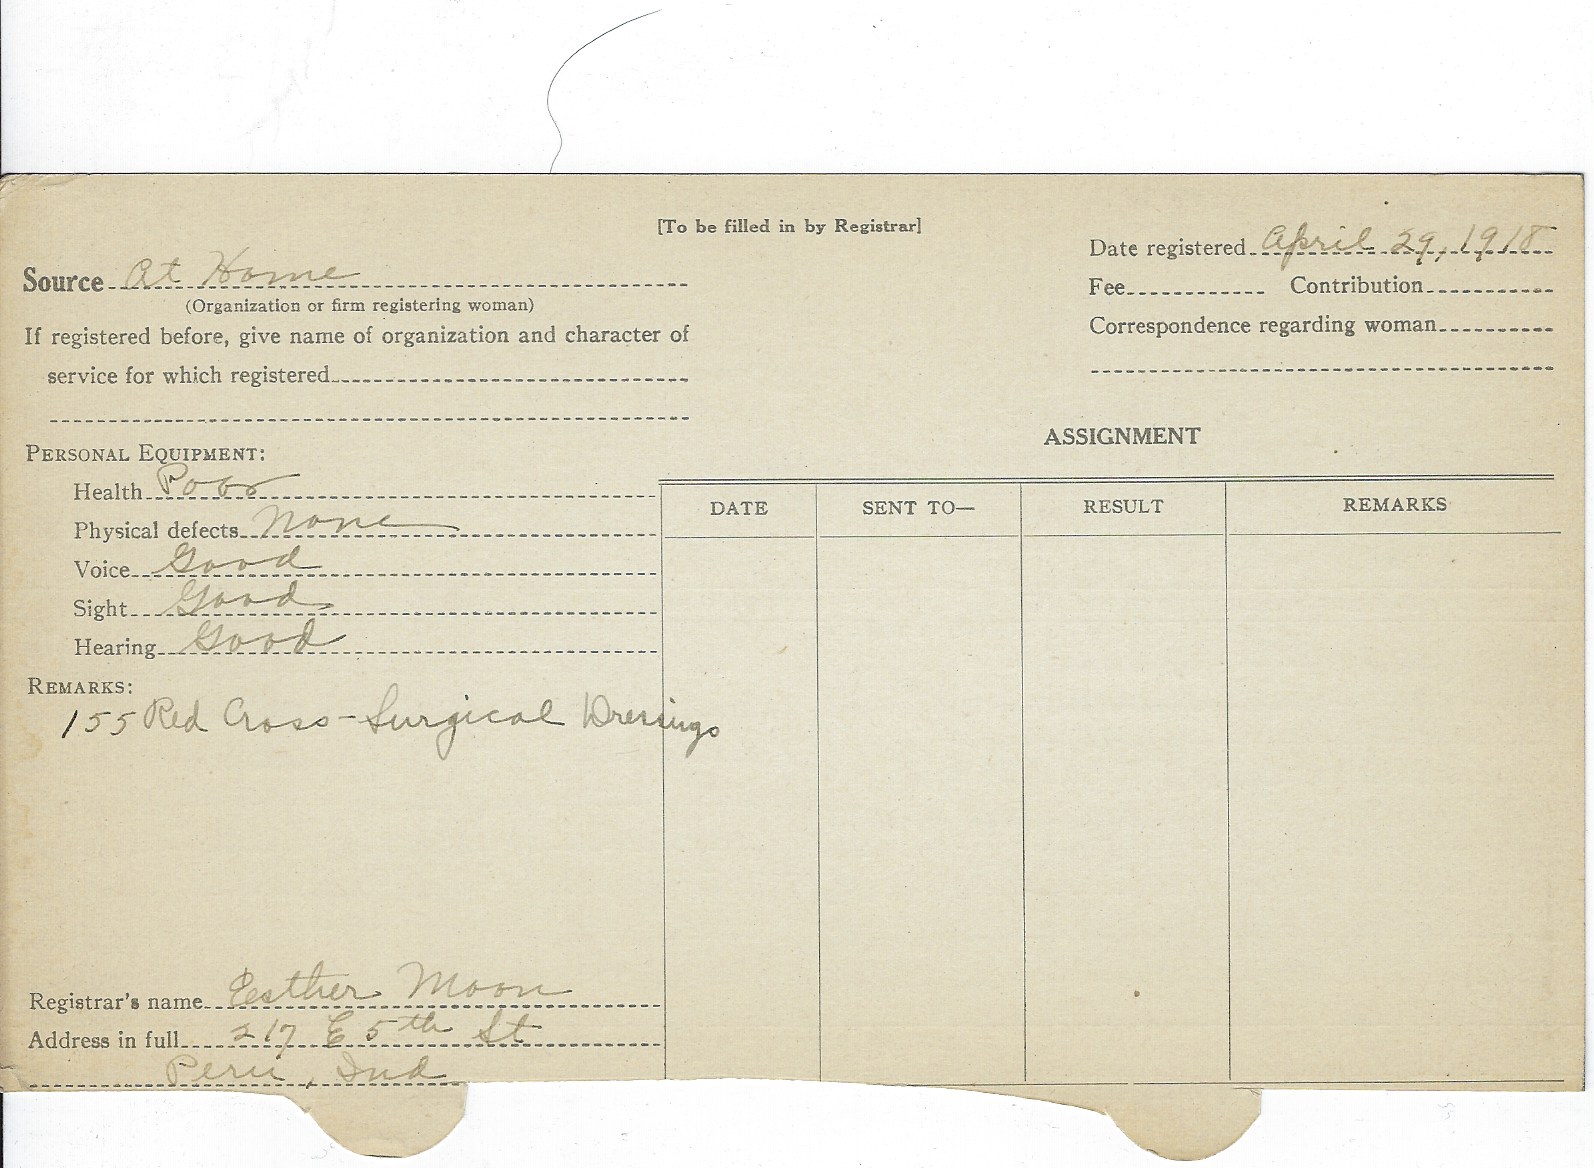 [To be filled in by Registrar]
Source At Home
(Organization or firm registering woman)
If registered before, give name of organization and character of
service for which registered
Date registered April 29, 1918
Fee Contribution
Correspondence regarding woman
PERSONAL EQUIPMENT:
Health Poor
Physical defects None
Voice Good
Sight Good
Hearing Good
REMARKS:
155 Red Cross - Surgical Dressings
ASSIGNMENT
DATE SENT TO— RESULT REMARKS
Registrar's name Esther Moon
Address in full 217 E 5th St
Peru, Ind